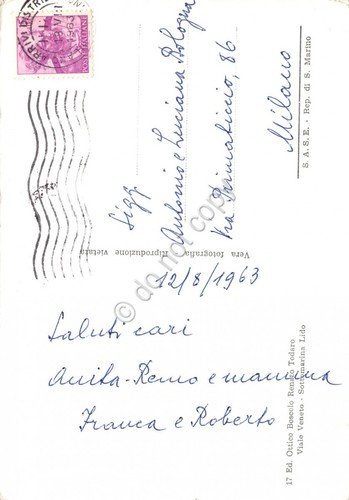 Sigg
Antonio e Luciana Bologna
Via Primaticcio, 86
Milano
S. A. S. E. - Rep. di S. Marino
Vera fotografia - Riproduzione vietata
12/8/1963
Saluti cari
Anita - Remo e mamma
Franca e Roberto
17 Ed. Ottico Boscolo Renato Todaro
Viale Veneto - Sottomarina Lido
© do not copy